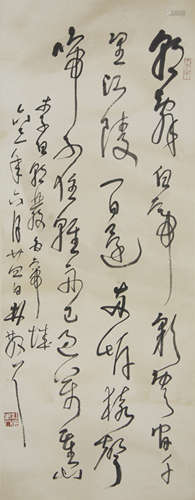 朝辭白帝彩雲間千
里江陵一日還兩岸猿聲
啼不住輕舟已過萬重山
李白朝發白帝城
年六月廿四日林散